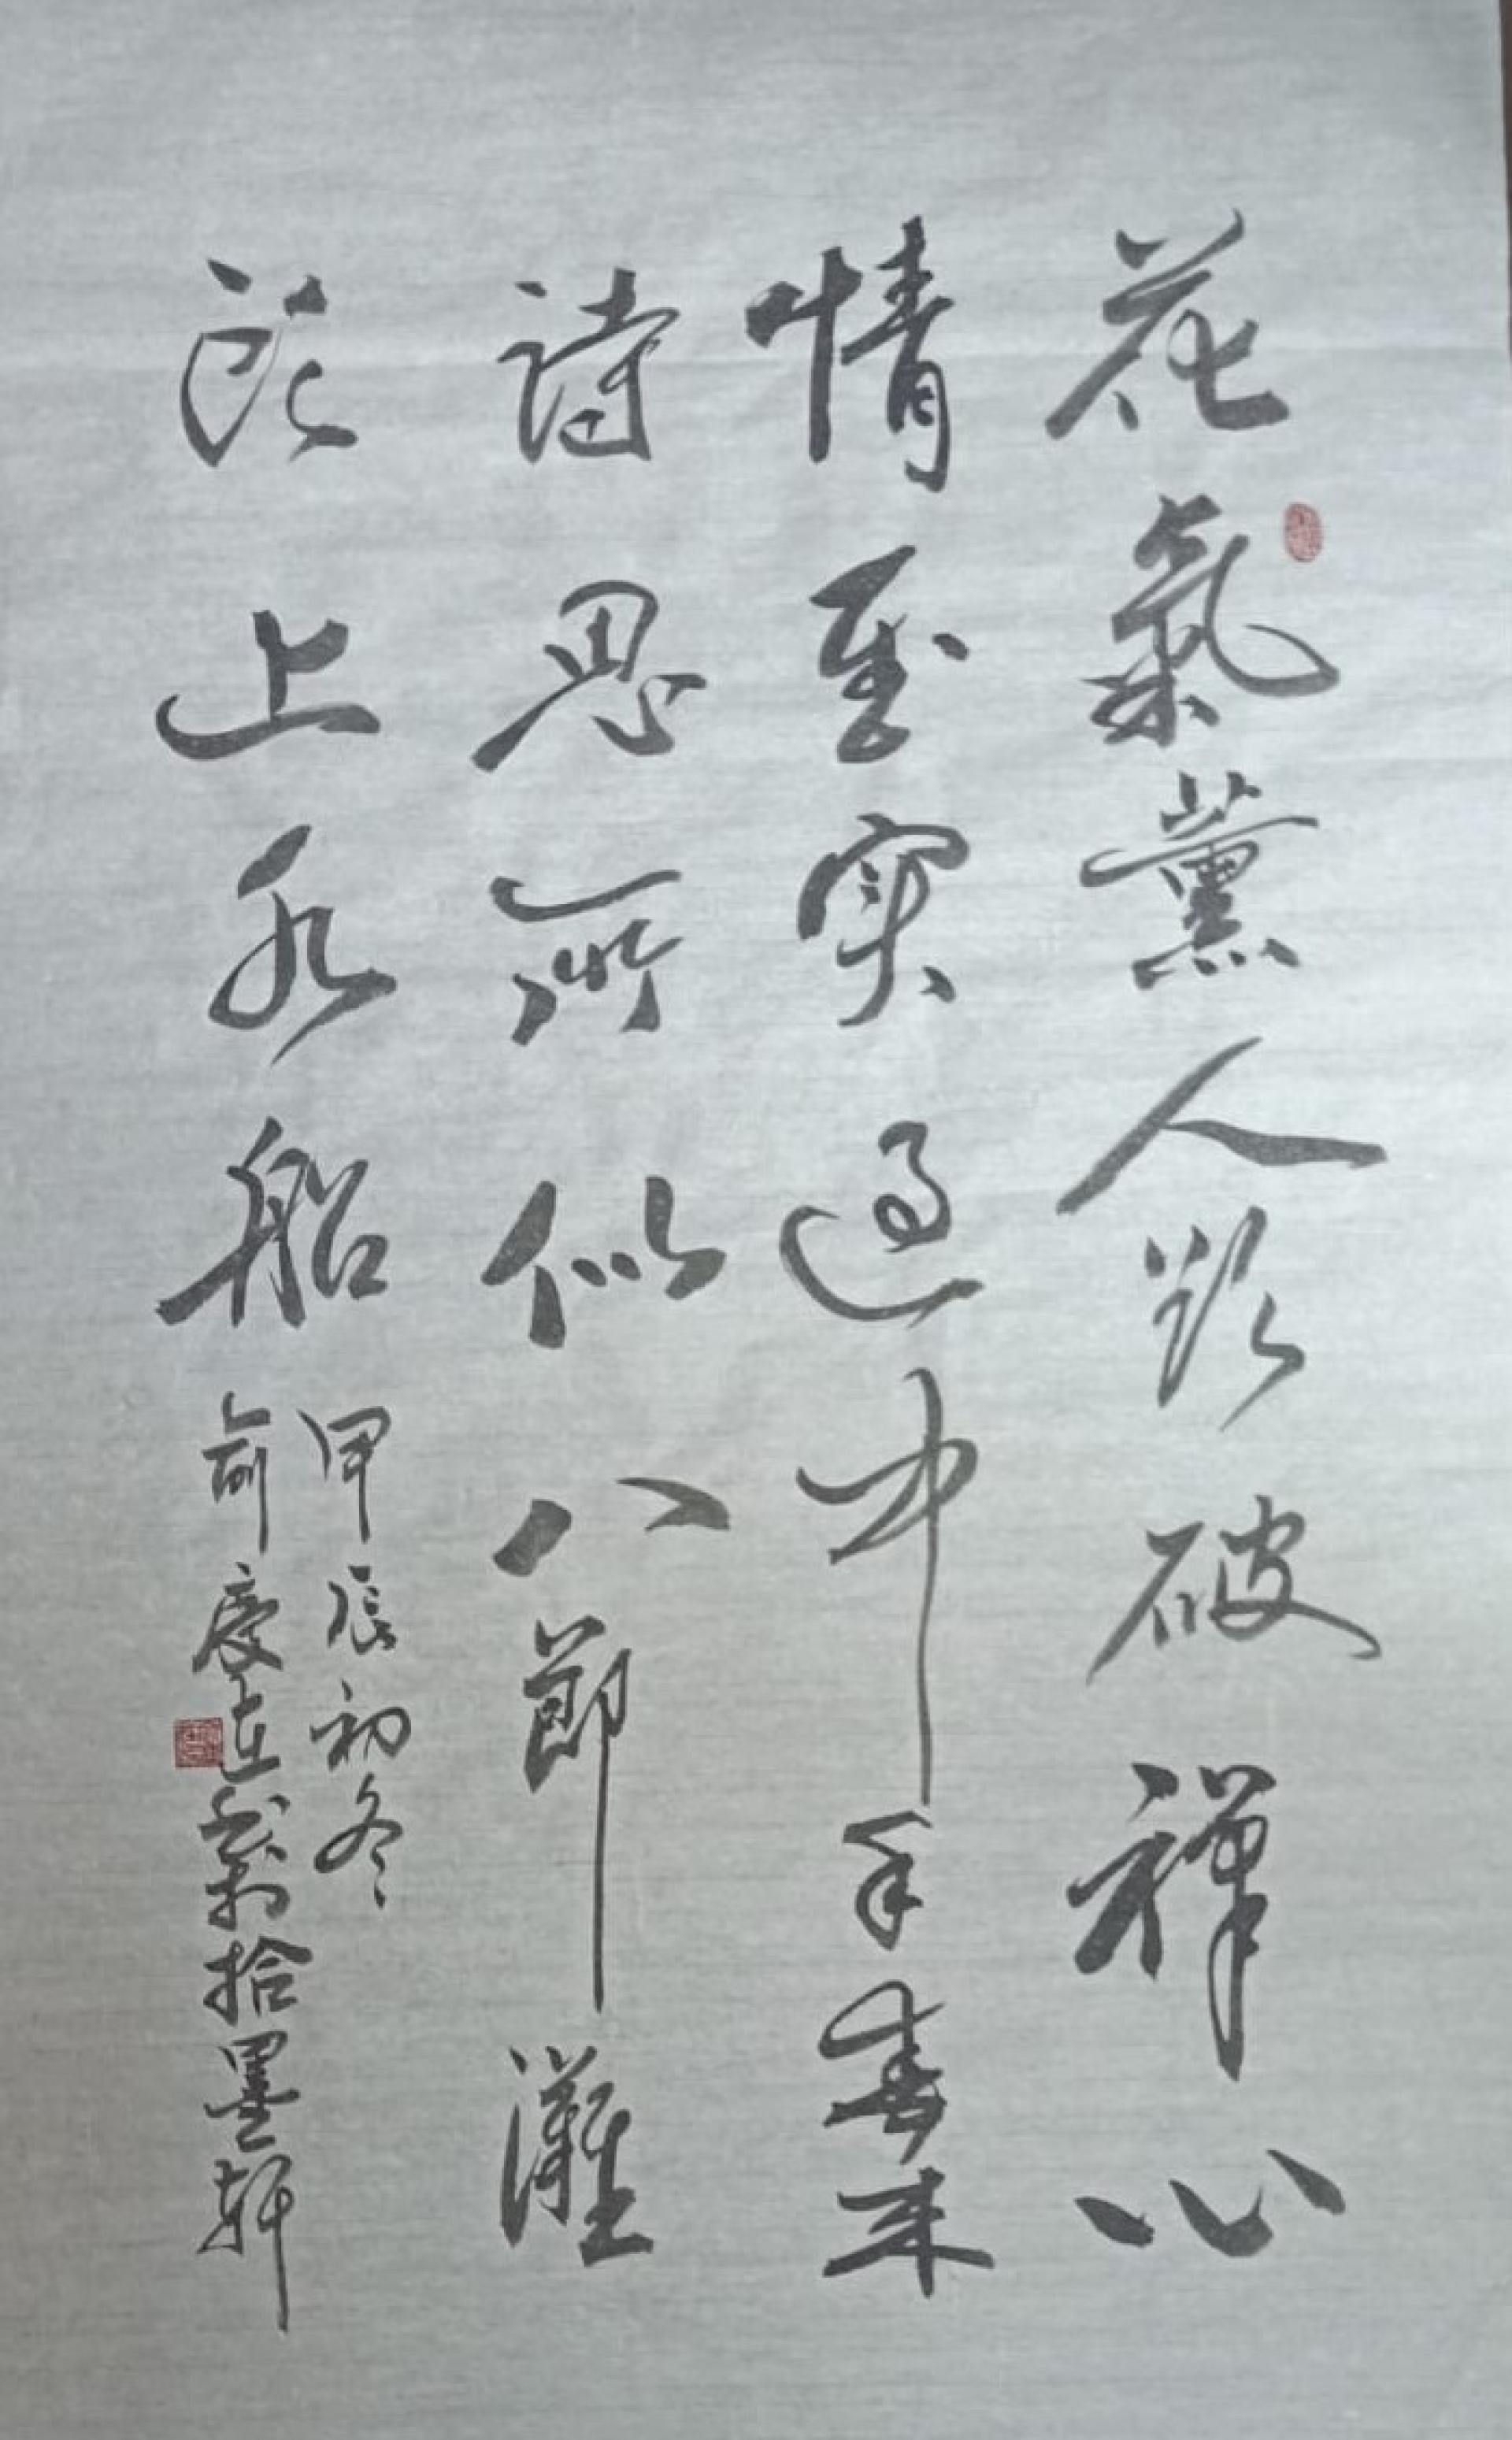 花氣薰人欲破禪心
情其實過中年春來
詩思所似八節灘
頭上水船
甲辰初冬
俞慶於拾墨軒